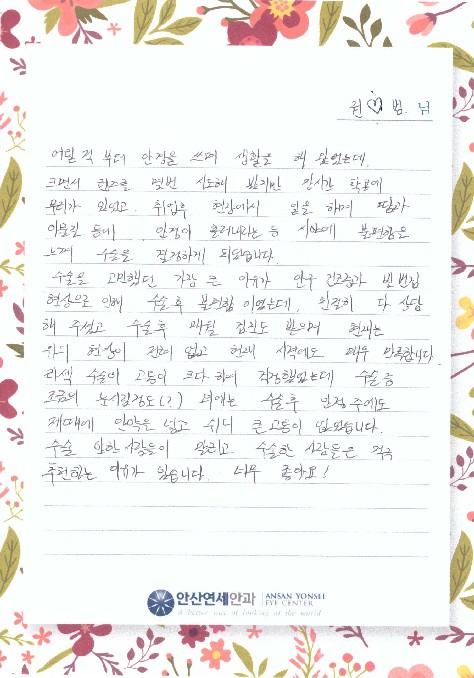 원♡범 님
어릴 적 부터 안경을 쓰며 생활을 해 왔었는데,
크면서 렌즈를 몇번 시도해 봤지만 장시간 착용에
무리가 있었고. 취업후 현장에서 일을 하며 땀과
이물질 등에 안경이 흘러내리는 등 시야에 불편함을
느껴 수술을 결정하게 되었습니다.
수술을 고민했던 가장 큰 이유가 안구 건조증과 빛 번짐
현상으로 인해 수술후 불편함 이였는데, 친절히 다 상담
해 주셨고 수술후 매월 검진도 받으며 현재는
위의 현상이 전혀 없고 현재 시력에도 매우 만족합니다.
라섹 수술의 고통이 크다 하여 걱정했었는데 수술 중
조금의 눈시림정도(?) 외에는 수술후 안정 중에도
제때에 안약을 넣고 쉬니 큰 고통이 없었습니다.
수술 안한 사람들이 말리고 수술한 사람들은 적극
추천하는 이유가 있습니다. 너무 좋아요!
안산연세안과 ANSAN YONSEI
EYE CENTER
a better way of looking at the world